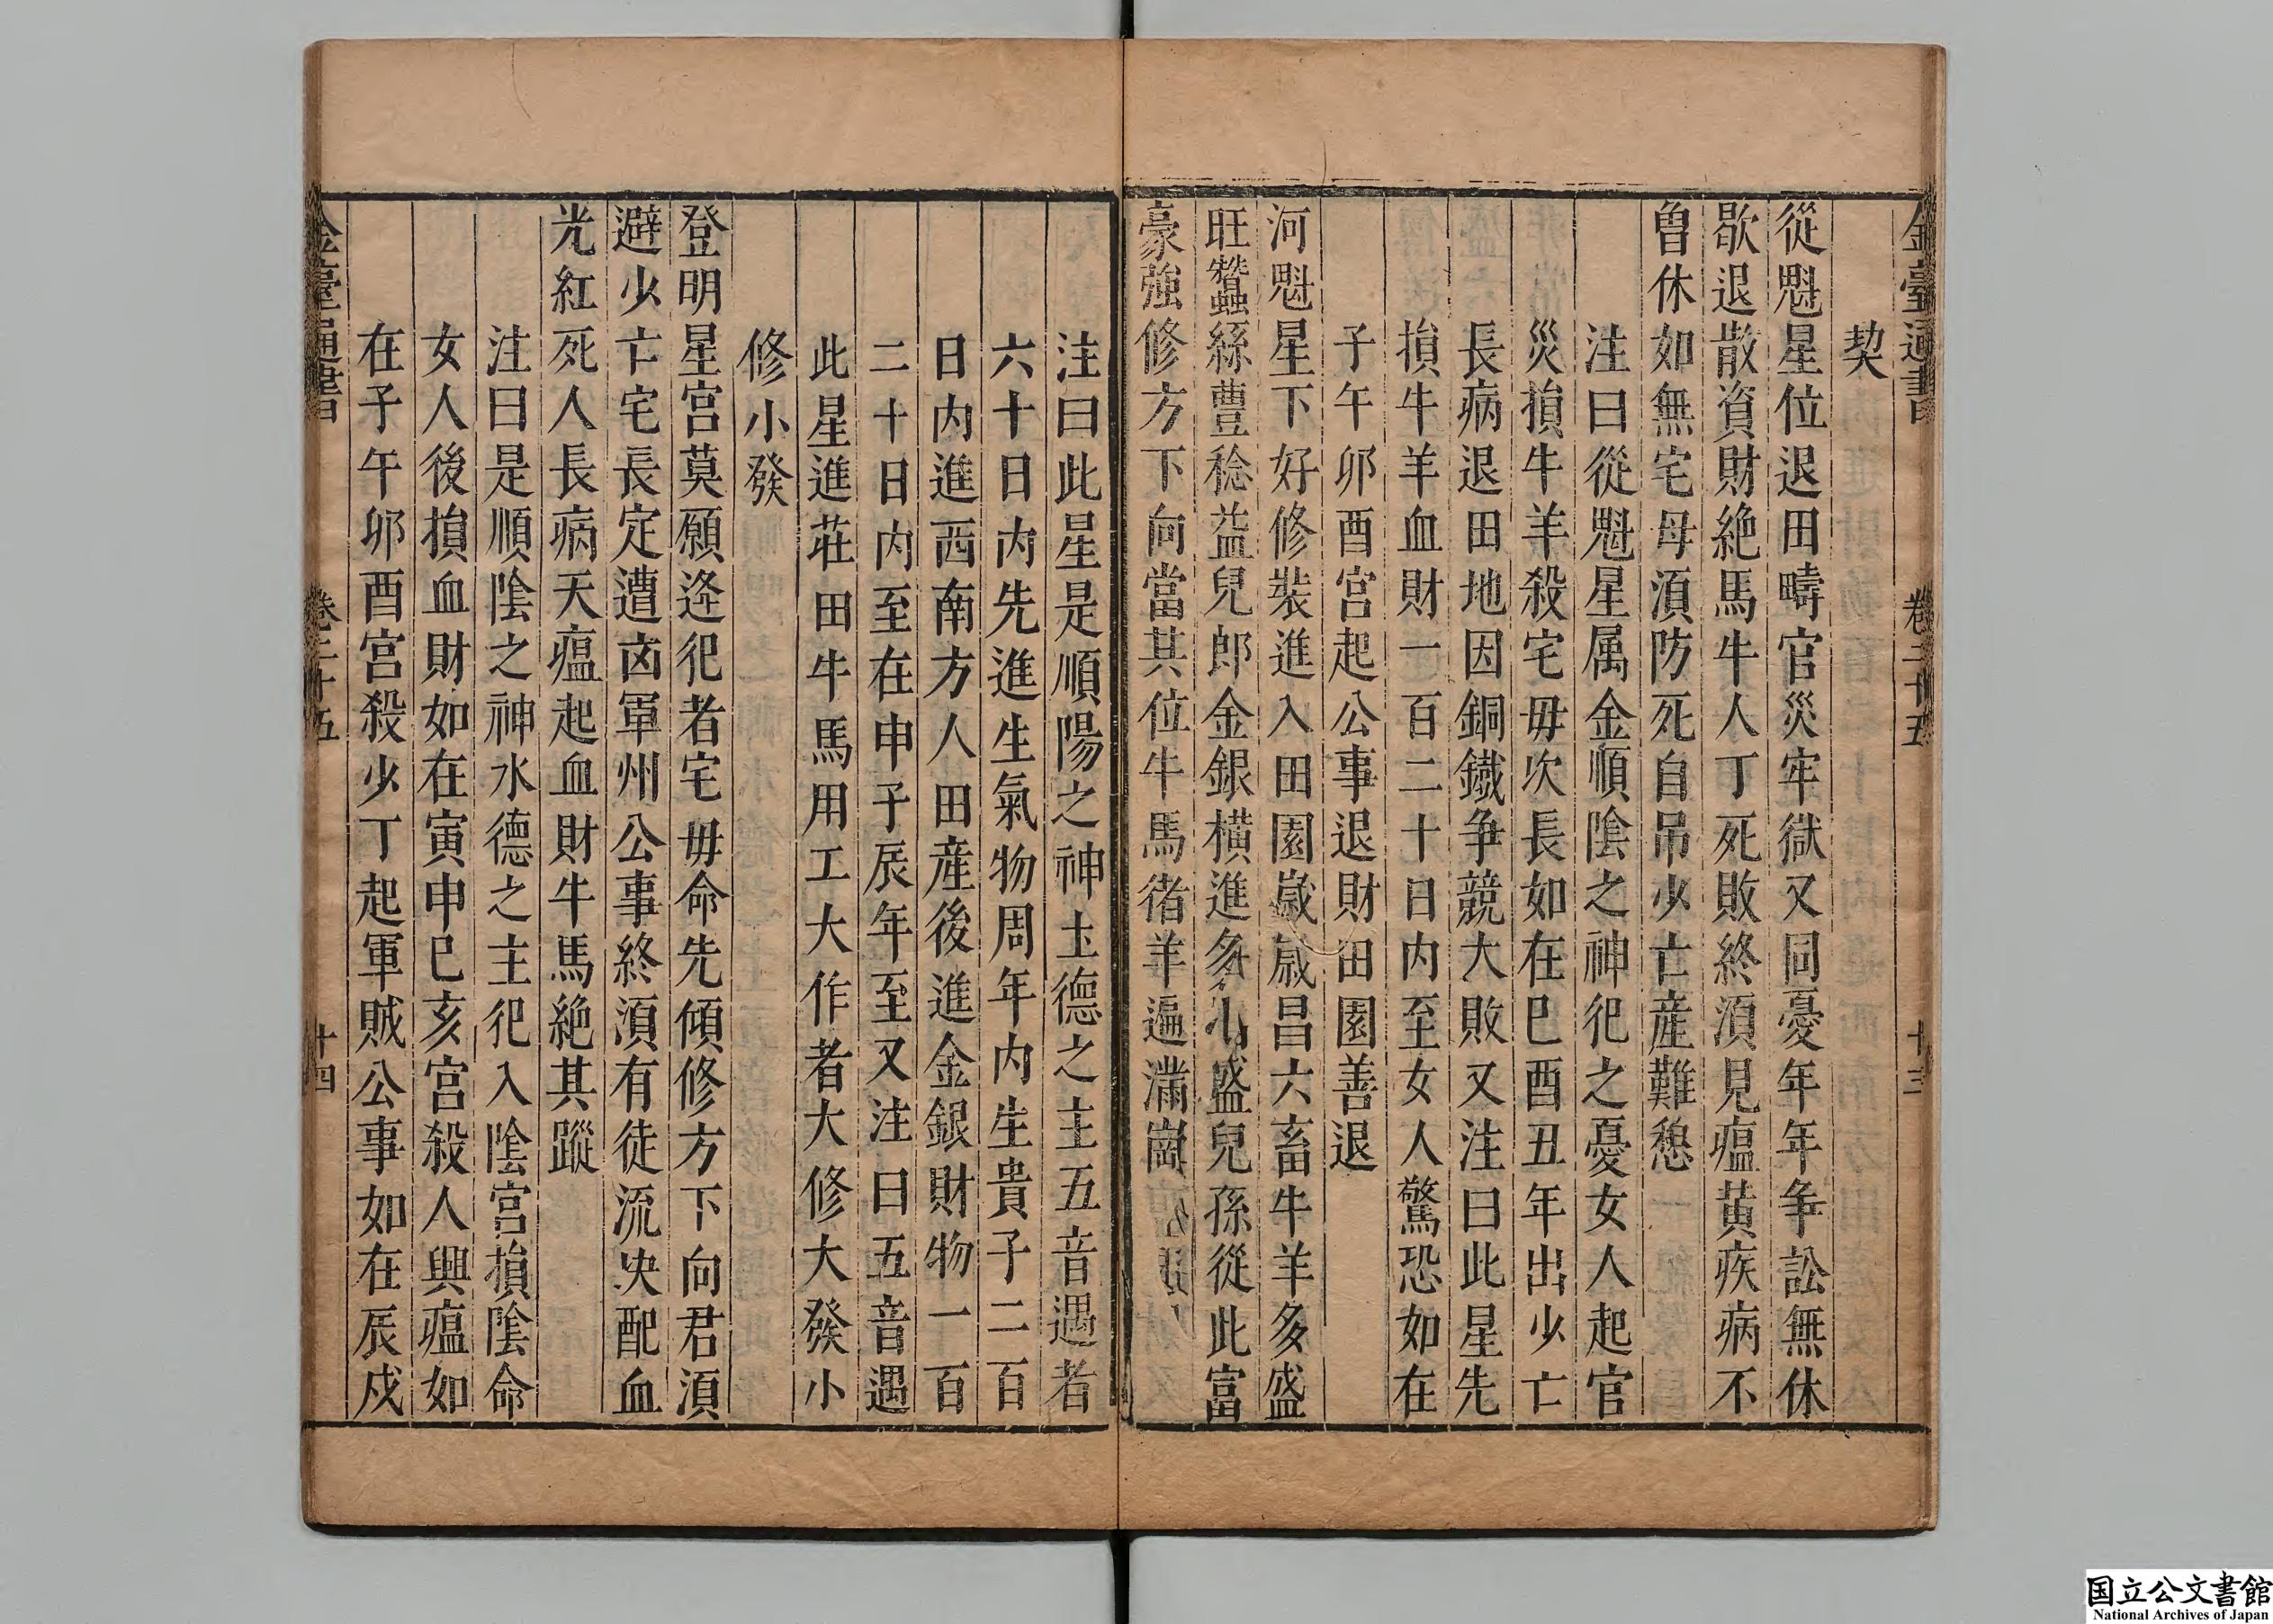 金臺通書 卷二十五 十三
契
從魁星位退田疇官災牢獄又同憂年年爭訟無休
歇退散資財絶馬牛人丁死敗終湏見瘟黄疾病不
曽休如無宅母湏防死自吊少亡産難愁
注曰從魁星属金順隂之神犯之憂女人起官
災損牛羊殺宅毋次長如在巳酉丑年出少亡
長病退田地因銅鐵争競大敗又注曰此星先
損牛羊血財一百二十日内至女人驚恐如在
子午卯酉宫起公事退財田園善退
河魁星下好修裝進入田園嵗嵗昌六畜牛羊多盛
旺蠶絲豊稔益兒郎金銀横進多 盛兒孫從此富
豪強修方下向當其位牛馬猪羊遍滿崗
注曰此星是順陽之神土德之主五音遇者
六十日内先進生氣物周年内生貴子二百
日内進西南方人田産後進金銀財物一百
二十日内至在申子辰年至又注曰五音遇
此星進莊田牛馬用工大作者大修大發小
修小發
登明星宫莫願逄犯者宅毋命先傾修方下向君湏
避少亡宅長定遭凶軍州公事終湏有徒流决配血
光紅死人長病天瘟起血財牛馬絶其蹤
注曰是順隂之神水德之主犯入隂宫損隂命
女人後損血財如在寅申巳亥宫殺人興瘟如
在子午卯酉宫殺少丁起軍賊公事如在辰戌
金臺通書 卷二十五 十四
国立公文書館
National Archives of Japan